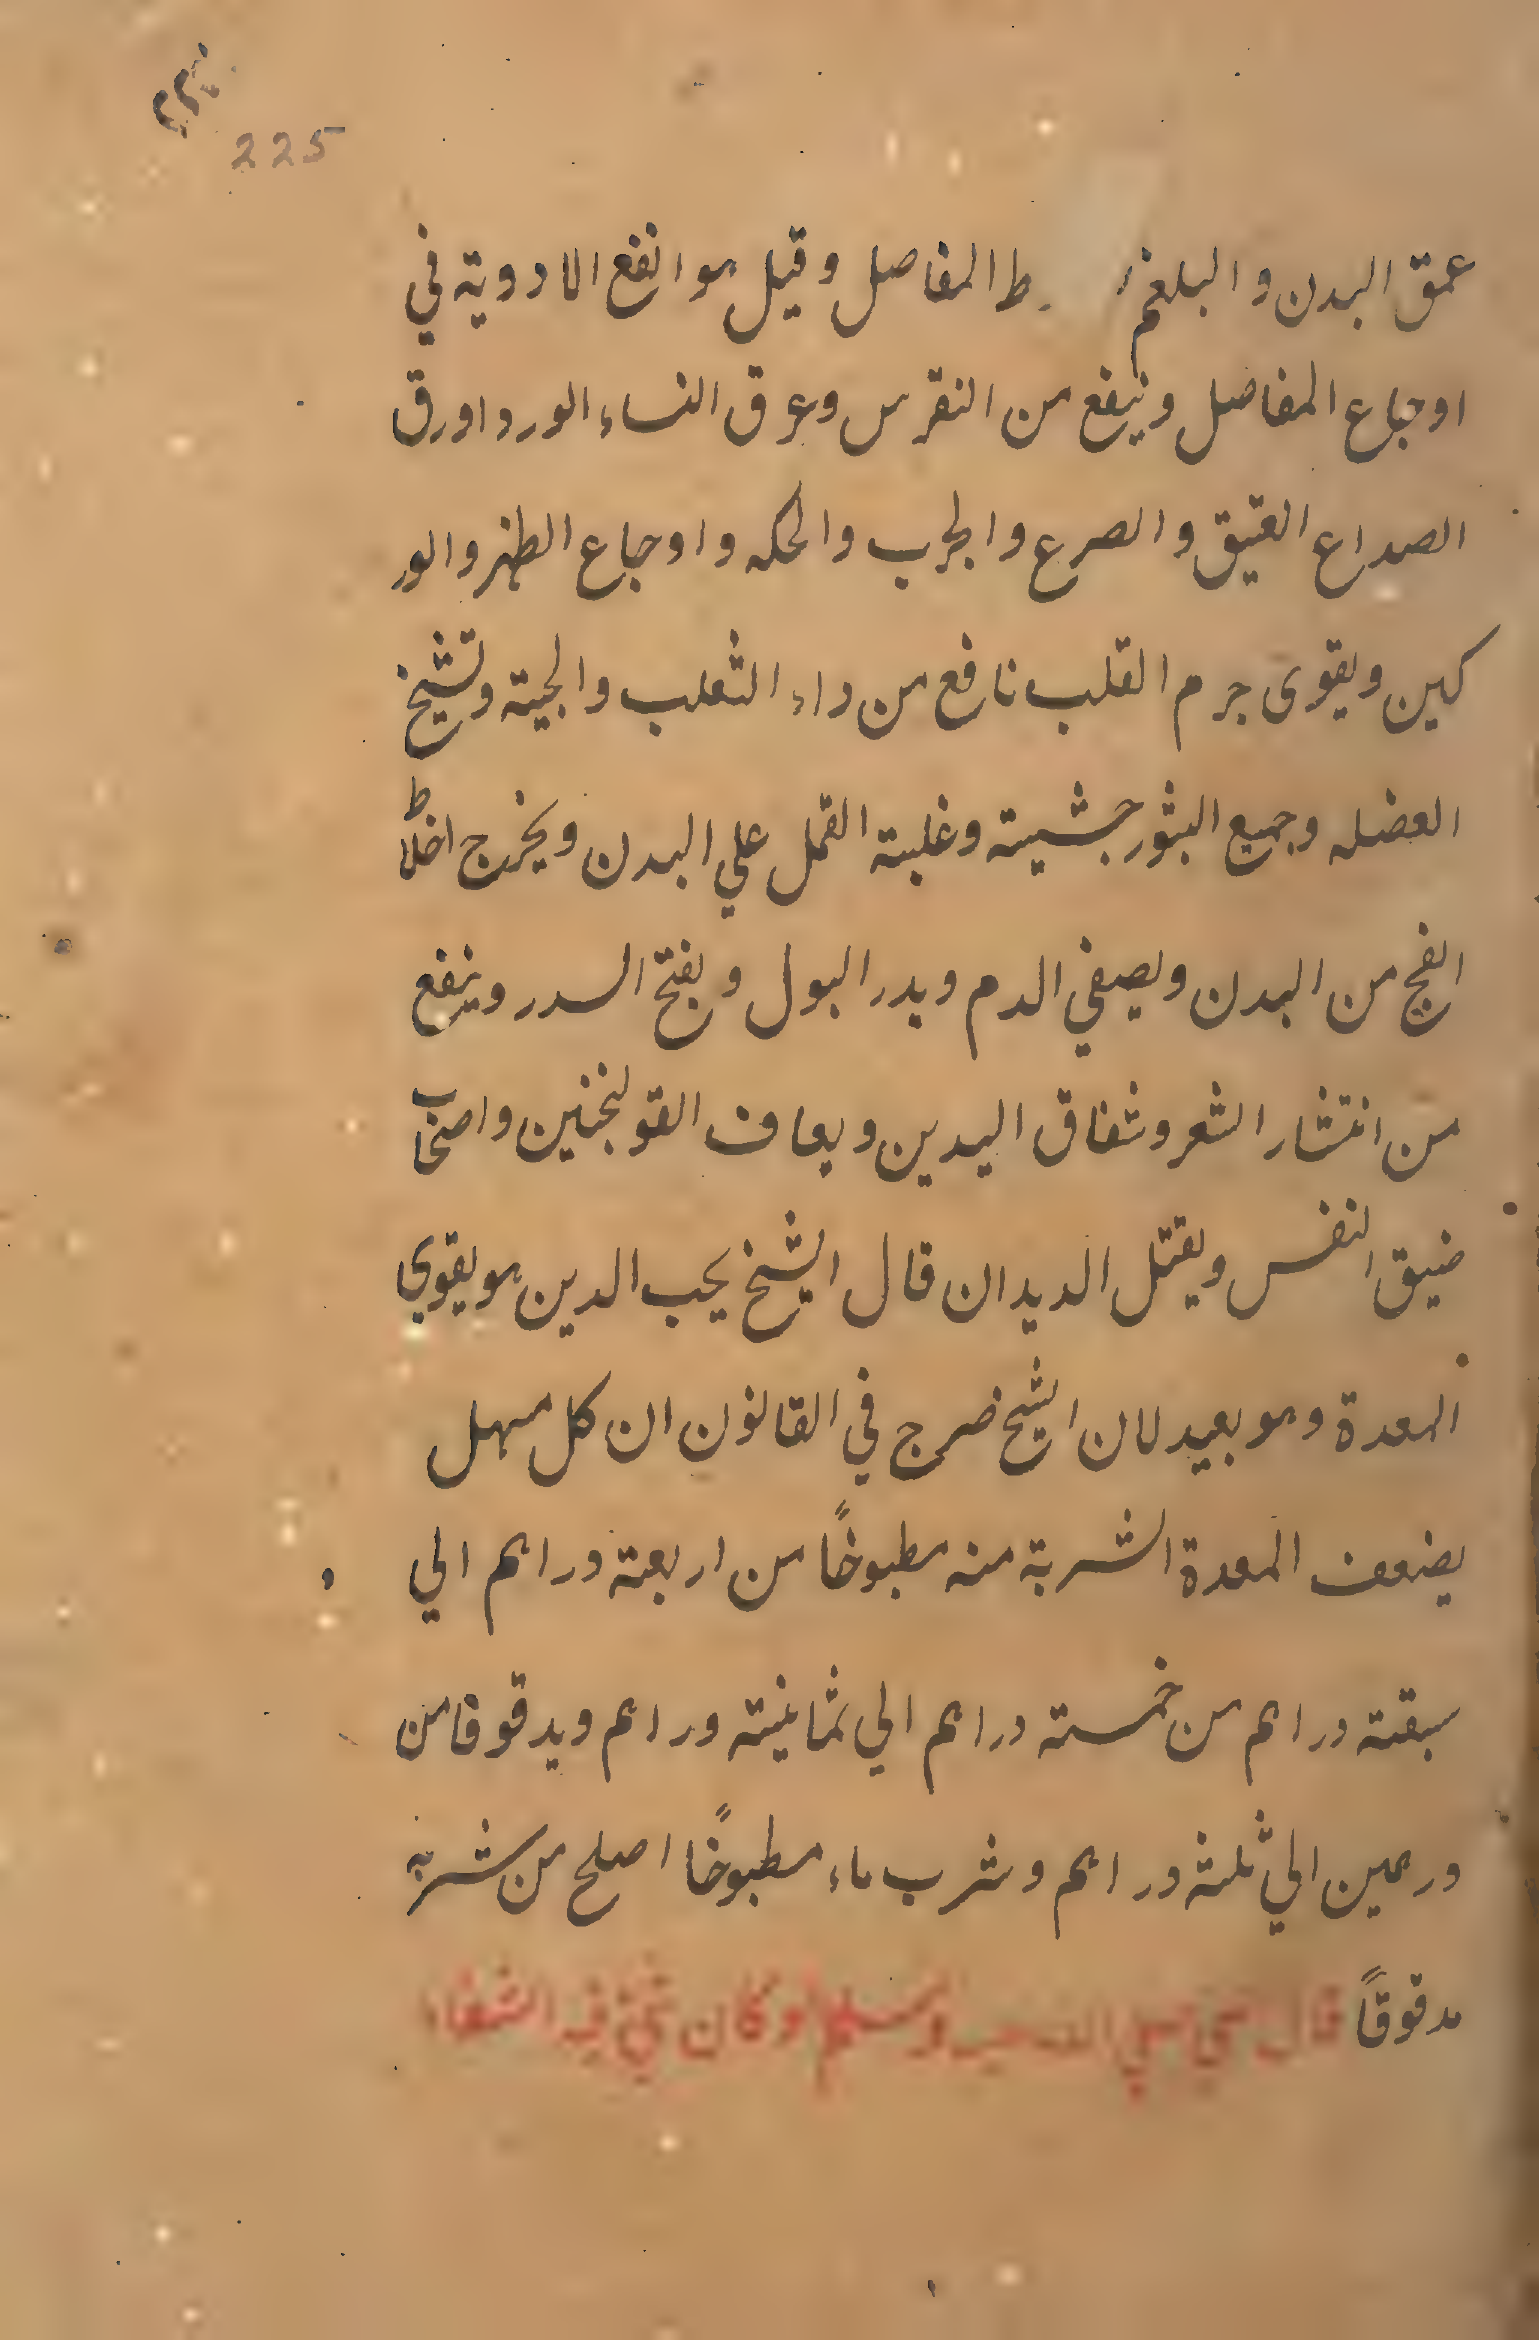 225
عمق البدن والبلغم ط المفاصل وقيل هو انفع الادوية في
اوجاع المفاصل وينفع من النقرس وعرق النساء الورد اورق
الصداع العتيق والصرع والجرب والحكه واوجاع الظهر والور
كين ويقوى جرم القلب نافع من داء الثعلب والحية وتشيخ
العضله وجميع البثور جشيته وغلبة القمل علي البدن ويخرج اخلاط
الفج من البدن ويصفي الدم ويدر البول ويفتح السدر وينفع
من انتشار الشعر وشقاق اليدين ويعاف القولنجنين واصحاب
ضيق النفس ويقتل الديدان قال الشيخ يحب الدين هو يقوي
المعدة وهو بعيد لان الشيخ ضرج في القانون ان كل مسهل
يضعف المعدة الشربة منه مطبوخًا من اربعة دراهم الي
سبقته دراهم من خمسته دراهم الي ثمانيته دراهم ويدقوقا من
درهمين الي ثلثة دراهم وشرب ماء مطبوخًا اصلح من شربه
مدقوقًا قال صلي الله وسلم لو كان شي فيه الشفاء